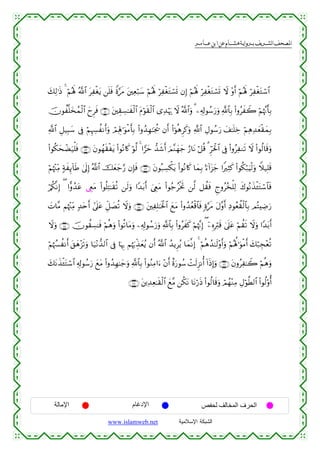 المصحف الشريف برواية هشام عن ابن عامر
ٱسۡتَغۡفِرۡ لَهُمۡ أَوۡ لَا تَسۡتَغۡفِرۡ لَهُمۡ إِن تَسۡتَغۡفِرۡ لَهُمۡ سَبۡعِينَ مَرَّةٗ فَلَن يَغۡفِرَ ٱللَّهُ لَهُمۡۚ ذَٰلِكَ
بِأَنَّهُمۡ كَفَرُواْ بِٱللَّهِ وَرَسُولِهِۦۗ وَٱللَّهُ لَا يَهۡدِي ٱلۡقَوۡمَ ٱلۡفَٰسِقِينَ فَرِحَ ٱلۡمُخَلَّفُونَ
بِمَقۡعَدِهِمۡ خِلَٰفَ رَسُولِ ٱللَّهِ وَكَرِهُوٓاْ أَن يُجَٰهِدُواْ بِأَمۡوَٰلِهِمۡ وَأَنفُسِهِمۡ فِي سَبِيلِ ٱللَّهِ
وَقَالُواْ لَا تَنفِرُواْ فِي ٱلۡحَرِّۗ قُلۡ نَارُ جَهَنَّمَ أَشَدُّ حَرّٗاۚ لَّوۡ كَانُواْ يَفۡقَهُونَ فَلۡيَضۡحَكُواْ
قَلِيلٗا وَلۡيَبۡكُواْ كَثِيرٗا جَزَآءَۢ بِمَا كَانُواْ يَكۡسِبُونَ فَإِن رَّجَعَكَ ٱللَّهُ إِلَىٰ طَآئِفَةٖ مِّنۡهُمۡ
فَٱسۡتَـٔۡذَنُوكَ لِلۡخُرُوجِ فَقُل لَّن تَخۡرُجُواْ مَعِيَ أَبَدٗا وَلَن تُقَٰتِلُواْ مَعِي عَدُوًّاۖ إِنَّكُمۡ
رَضِيتُم بِٱلۡقُعُودِ أَوَّلَ مَرَّةٖ فَٱقۡعُدُواْ مَعَ ٱلۡخَٰلِفِينَ وَلَا تُصَلِّ عَلَىٰٓ أَحَدٖ مِّنۡهُم مَّاتَ
أَبَدٗا وَلَا تَقُمۡ عَلَىٰ قَبۡرِهِۦٓۖ إِنَّهُمۡ كَفَرُواْ بِٱللَّهِ وَرَسُولِهِۦ وَمَاتُواْ وَهُمۡ فَٰسِقُونَ وَلَا
تُعۡجِبۡكَ أَمۡوَٰلُهُمۡ وَأَوۡلَٰدُهُمۡۚ إِنَّمَا يُرِيدُ ٱللَّهُ أَن يُعَذِّبَهُم بِهَا فِي ٱلدُّنۡيَا وَتَزۡهَقَ أَنفُسُهُمۡ
وَهُمۡ كَٰفِرُونَ وَإِذَآ أُنزِلَتۡ سُورَةٌ أَنۡ ءَامِنُواْ بِٱللَّهِ وَجَٰهِدُواْ مَعَ رَسُولِهِ ٱسۡتَـٔۡذَنَكَ
أُوْلُواْ ٱلطَّوۡلِ مِنۡهُمۡ وَقَالُواْ ذَرۡنَا نَكُن مَّعَ ٱلۡقَٰعِدِينَ
الحرف المخالف لحفص الإدغام الإمالة
الشبكة الإسلامية www.islamweb.net